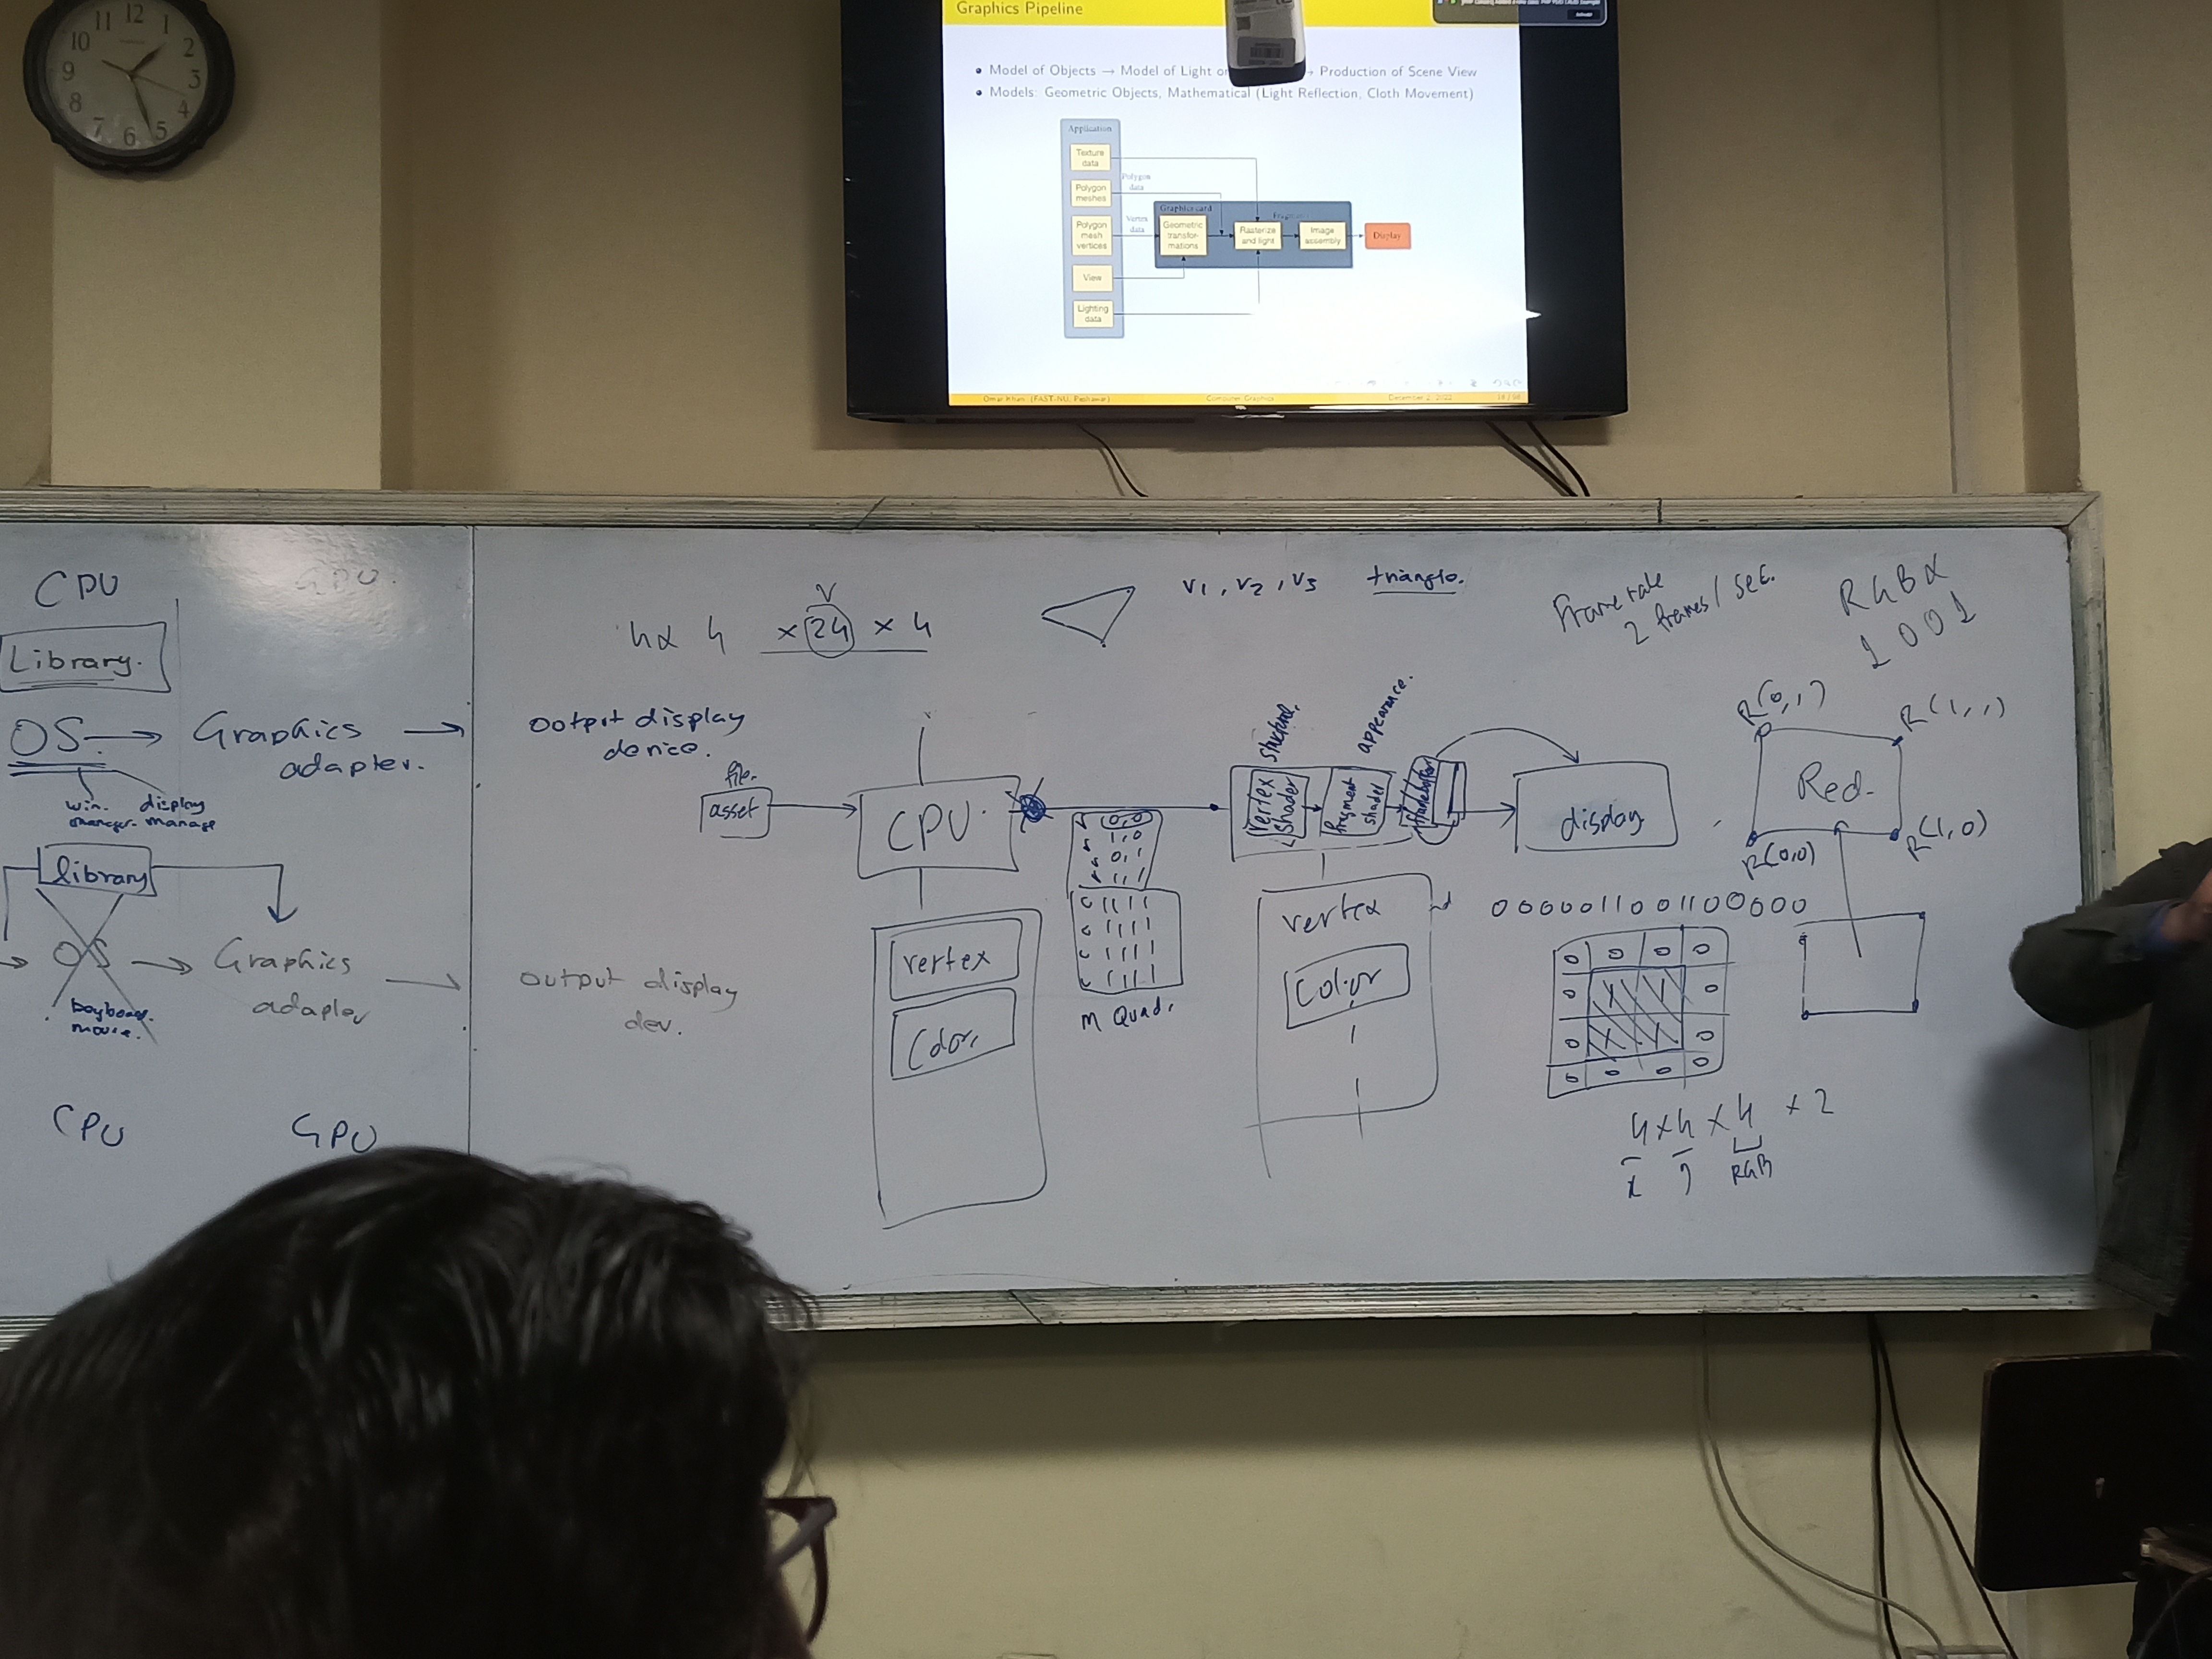 12
11
1
10
2
9
3
8
4
7
5
6
Graphics Pipeline
Model of Objects → Model of Light on → Production of Scene View
Models: Geometric Objects, Mathematical (Light Reflection, Cloth Movement)
Application
Texture data
Polygon meshes
Polygon mesh vertices
View
Lighting data
Polygon data
Vertex data
Graphics card
Geometric transfor-
mations
Rasterize and light
Image assembly
Display
Omar Khan (FAST-NU, Peshawar)
Computer Graphics
December 2, 2022
CPU
GPU.
Library.
OS. → Graphics adapter. →
win. manager.
display manage
library
OS → Graphics adapter →
keyboard.
mouse.
CPU
GPU
V
4x 4 x 24 x 4
V1, V2, V3 triangle.
Frame rate
2 frames / sec.
RGBα
1001
Output display device.
file.
asset
CPU.
(0,0)
1,0
0,1
1,1
C 1111
C 1111
C 1111
C 1111
M Quad.
structure.
appearance.
vertex shader
fragment shader
framebuffer
display
R(0,1)
R(1,1)
Red.
R(0,0)
R(1,0)
output display dev.
vertex
Color.
vertex
Color
0000011001100000
0 0 0 0
0 X X 0
0 X X 0
0 0 0 0
4 x 4 x 4 x 2
x y RGB